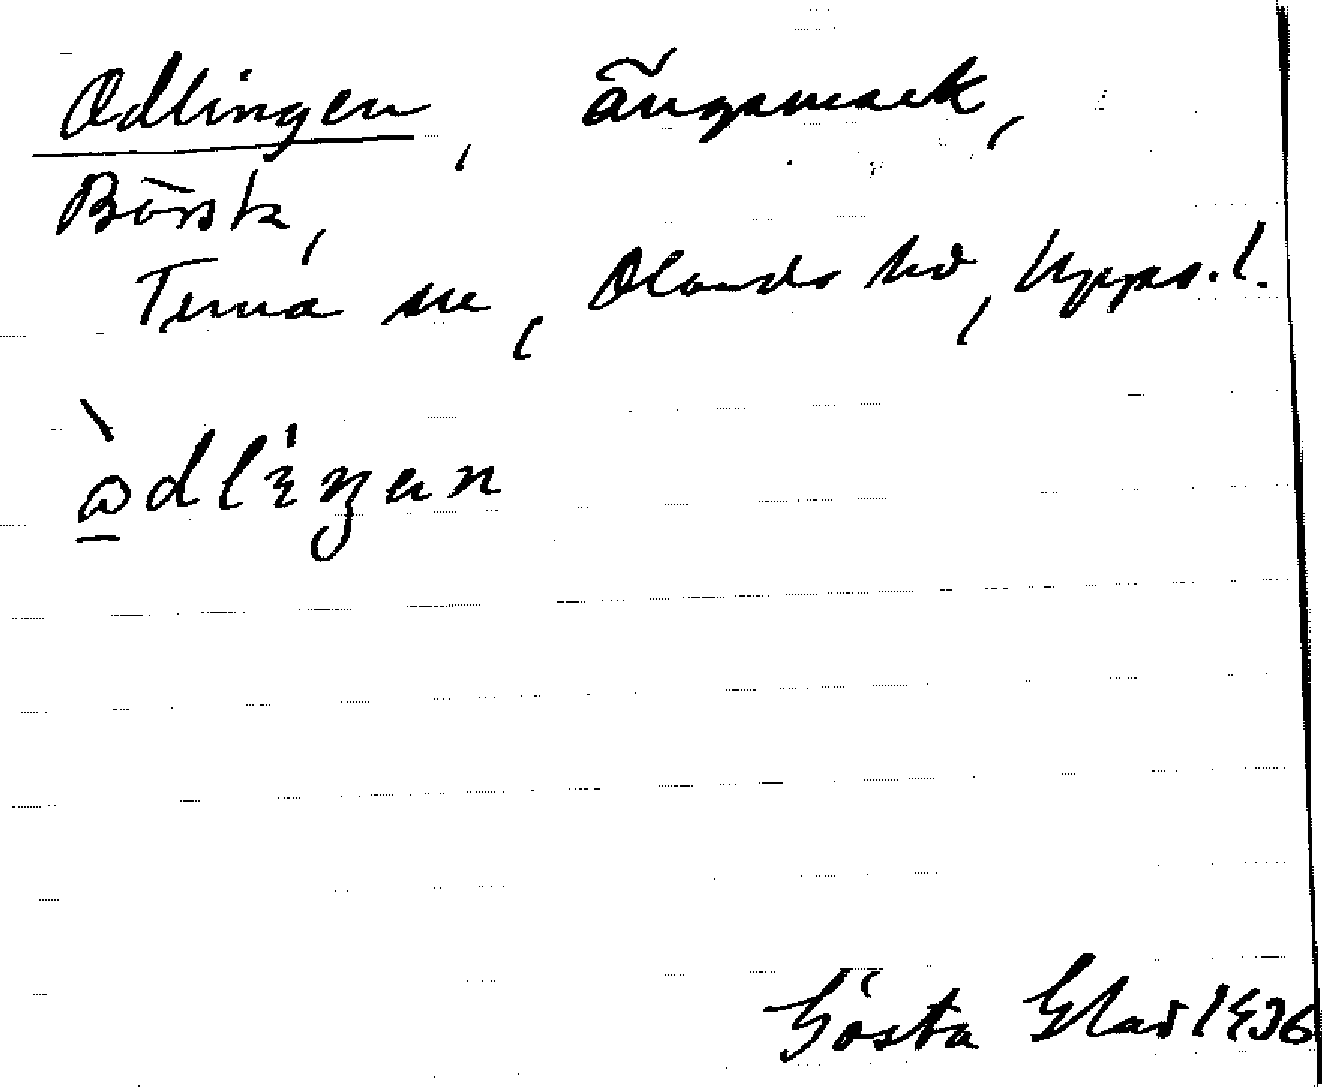 Odlingen, ängsmark,
Börsta,
Tensta sn, Olands hd, Upps. l.
òdlıŋan
Gösta Elas 1936